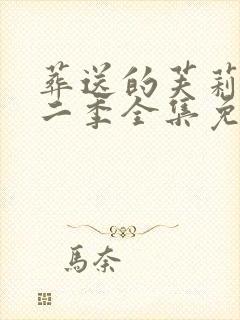 葬送的芙莉
二季全集免
馬奈